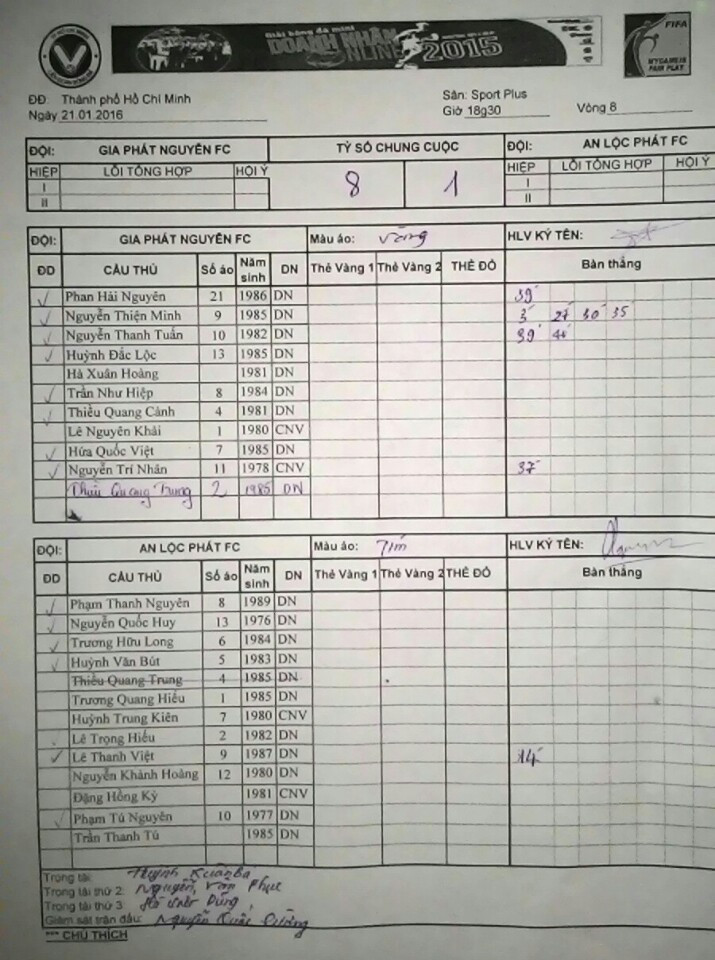 Giải bóng đá mini
DOANH NHÂN
ONLINE 2015
FIFA
MY GAME IS
FAIR PLAY
ĐĐ: Thành phố Hồ Chí Minh
Sân: Sport Plus
Ngày 21.01.2016
Giờ 18g30
Vòng 8
ĐỘI: GIA PHÁT NGUYÊN FC TỶ SỐ CHUNG CUỘC ĐỘI: AN LỘC PHÁT FC
HIỆP LỖI TỔNG HỢP HỘI Ý 8 1 HIỆP LỖI TỔNG HỢP HỘI Ý
I I
II II
ĐỘI: GIA PHÁT NGUYÊN FC Màu áo: Vàng HLV KÝ TÊN:
ĐD CẦU THỦ Số áo Năm sinh DN Thẻ Vàng 1 Thẻ Vàng 2 THẺ ĐỎ Bàn thắng
Phan Hải Nguyên 21 1986 DN 39'
Nguyễn Thiện Minh 9 1985 DN 3' 27' 30' 35'
Nguyễn Thanh Tuấn 10 1982 DN 39'
Huỳnh Đắc Lộc 13 1985 DN
Hà Xuân Hoàng 1981 DN
Trần Như Hiệp 8 1984 DN
Thiều Quang Cảnh 4 1981 DN
Lê Nguyên Khải 1 1980 CNV
Hứa Quốc Việt 7 1985 DN
Nguyễn Trí Nhân 11 1978 CNV 37'
Quang Trung 2 1985 DN
ĐỘI: AN LỘC PHÁT FC Màu áo: Tím HLV KÝ TÊN:
ĐD CẦU THỦ Số áo Năm sinh DN Thẻ Vàng 1 Thẻ Vàng 2 THẺ ĐỎ Bàn thắng
Phạm Thanh Nguyên 8 1989 DN
Nguyễn Quốc Huy 13 1976 DN
Trương Hữu Long 6 1984 DN
Huỳnh Văn Bút 5 1983 DN
Thiều Quang Trung 4 1985 DN
Trương Quang Hiếu 1 1985 DN
Huỳnh Trung Kiên 7 1980 CNV
Lê Trọng Hiếu 2 1982 DN
Lê Thanh Việt 9 1987 DN 14'
Nguyễn Khánh Hoàng 12 1980 DN
Đặng Hồng Kỳ 1981 CNV
Phạm Tú Nguyên 10 1977 DN
Trần Thanh Tú 1985 DN
Trọng tài: Huỳnh Xuân Ba
Trọng tài thứ 2: Nguyễn Văn Phục
Trọng tài thứ 3: Dũng
Giám sát trận đấu: Nguyễn Xuân Cường
*** CHÚ THÍCH